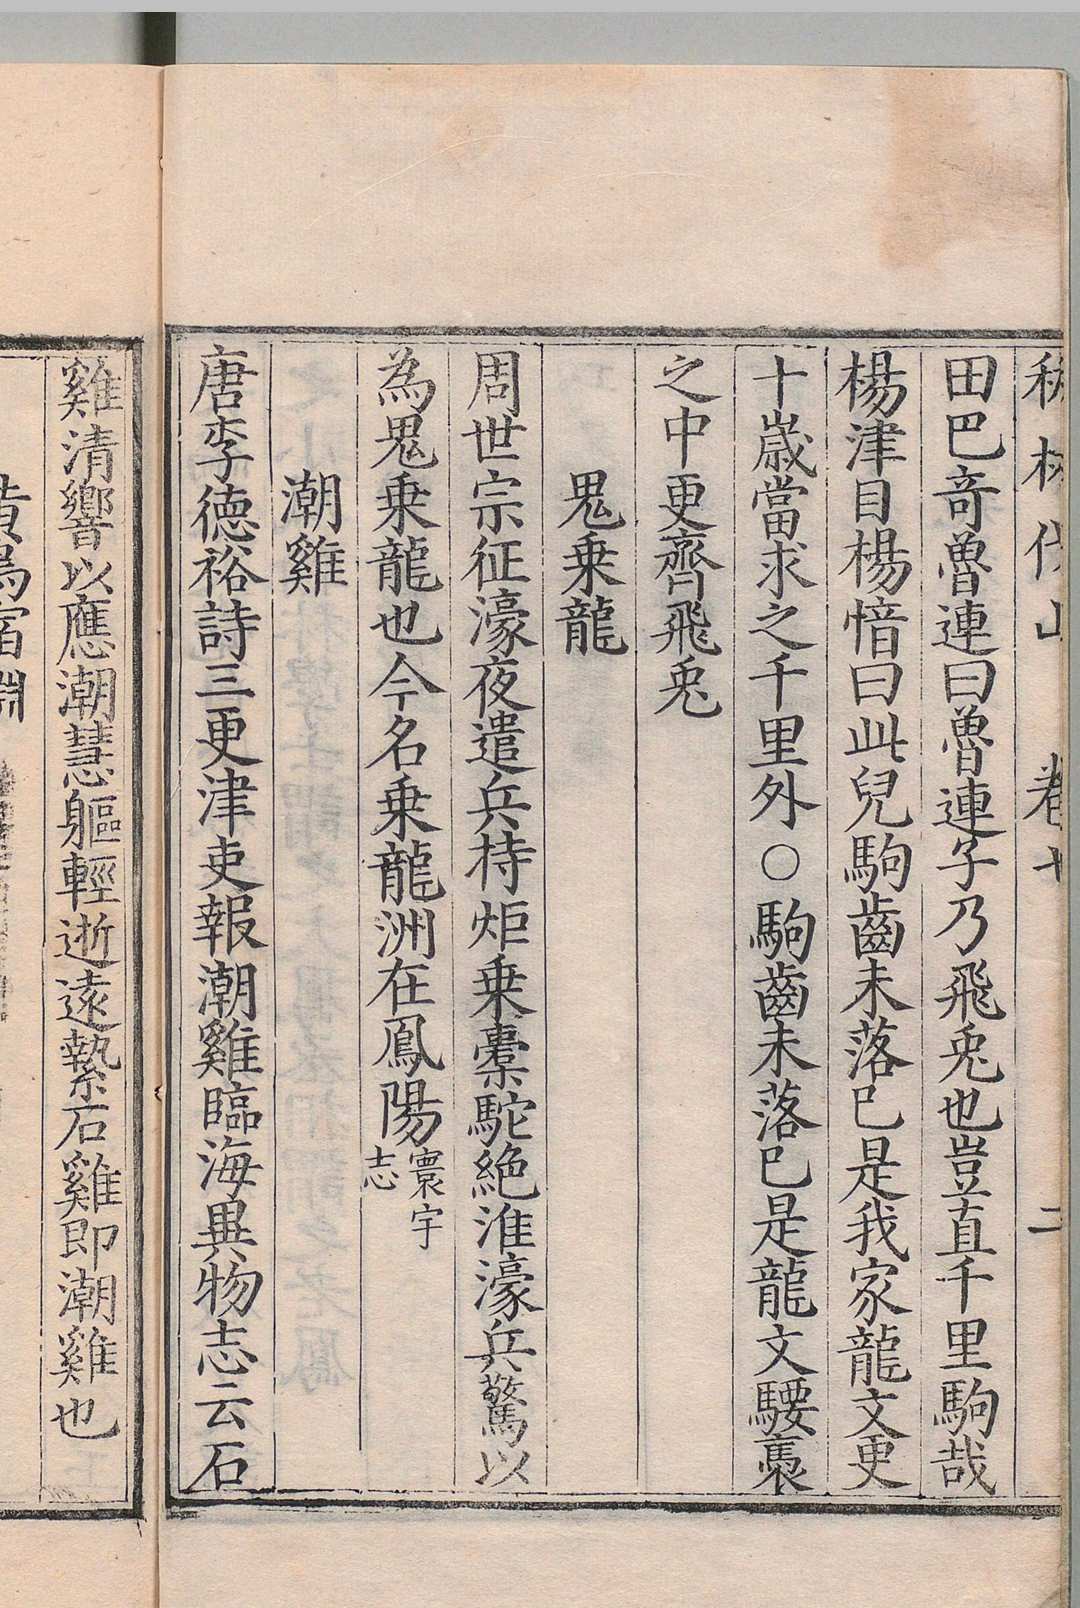 秇林伐山 卷七 二
田巴竒魯連曰魯連子乃飛兎也豈直千里駒哉
楊津目楊愔曰此兒駒齒未落巳是我家龍文更
十歲當求之千里外○駒齒未落巳是龍文騕褭
之中更齊飛兎
鬼乗龍
周世宗征濠夜遣兵持炬乗橐駝絶淮濠兵驚以
為鬼乗龍也今名乗龍洲在鳳陽寰宇志
潮雞
唐李德裕詩三更津吏報潮雞臨海異物志云石
雞清響以應潮慧軀輕逝遠縶石雞即潮雞也
宿淵